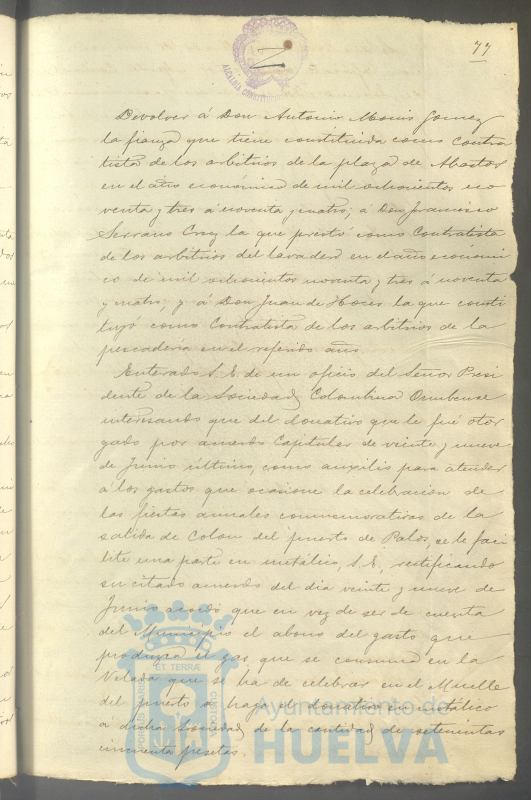 77
ALCALDIA CONSTITUCIONAL
Devolver á Don Antonio Gomez
la fianza que tiene constituida como contra
tista de los arbitrios de la plaza de Abastos
en el año económico de mil ochocientos no
venta y tres á noventa y cuatro; á Don Francisco
Serrano Cruz la que prestó como Contratista
de los arbitrios del lavadero en el año económi
co de mil ochocientos noventa y tres á noventa
y cuatro; y á Don Juan de Hoces la que consti
tuyó como Contratista de los arbitrios de la
pescaderia en el referido año.
Enterado S.E. de un oficio del Señor Presi
dente de la Sociedad Colombina Onubense
interesando que del donativo que le fué otor
gado por acuerdo Capitular de veinte y nueve
de Junio último, como auxilio para atender
á los gastos que ocasione la celebración de
las fiestas anuales conmemorativas de la
salida de Colon del puerto de Palos, se le faci
lite una parte en metálico, S.E., rectificando
su citado acuerdo del dia veinte y nueve de
Junio acordó que en vez de ser de cuenta
del Municipio el abono del gasto que
produzca el gas que se consuma en la
Velada que se ha de celebrar en el Muelle
del puerto se haga el donativo en metálico
á dicha Sociedad de la cantidad de setecientas
cincuenta pesetas.
PORTUS MARIS ET TERRÆ CUSTODIA
Ayuntamiento de
HUELVA